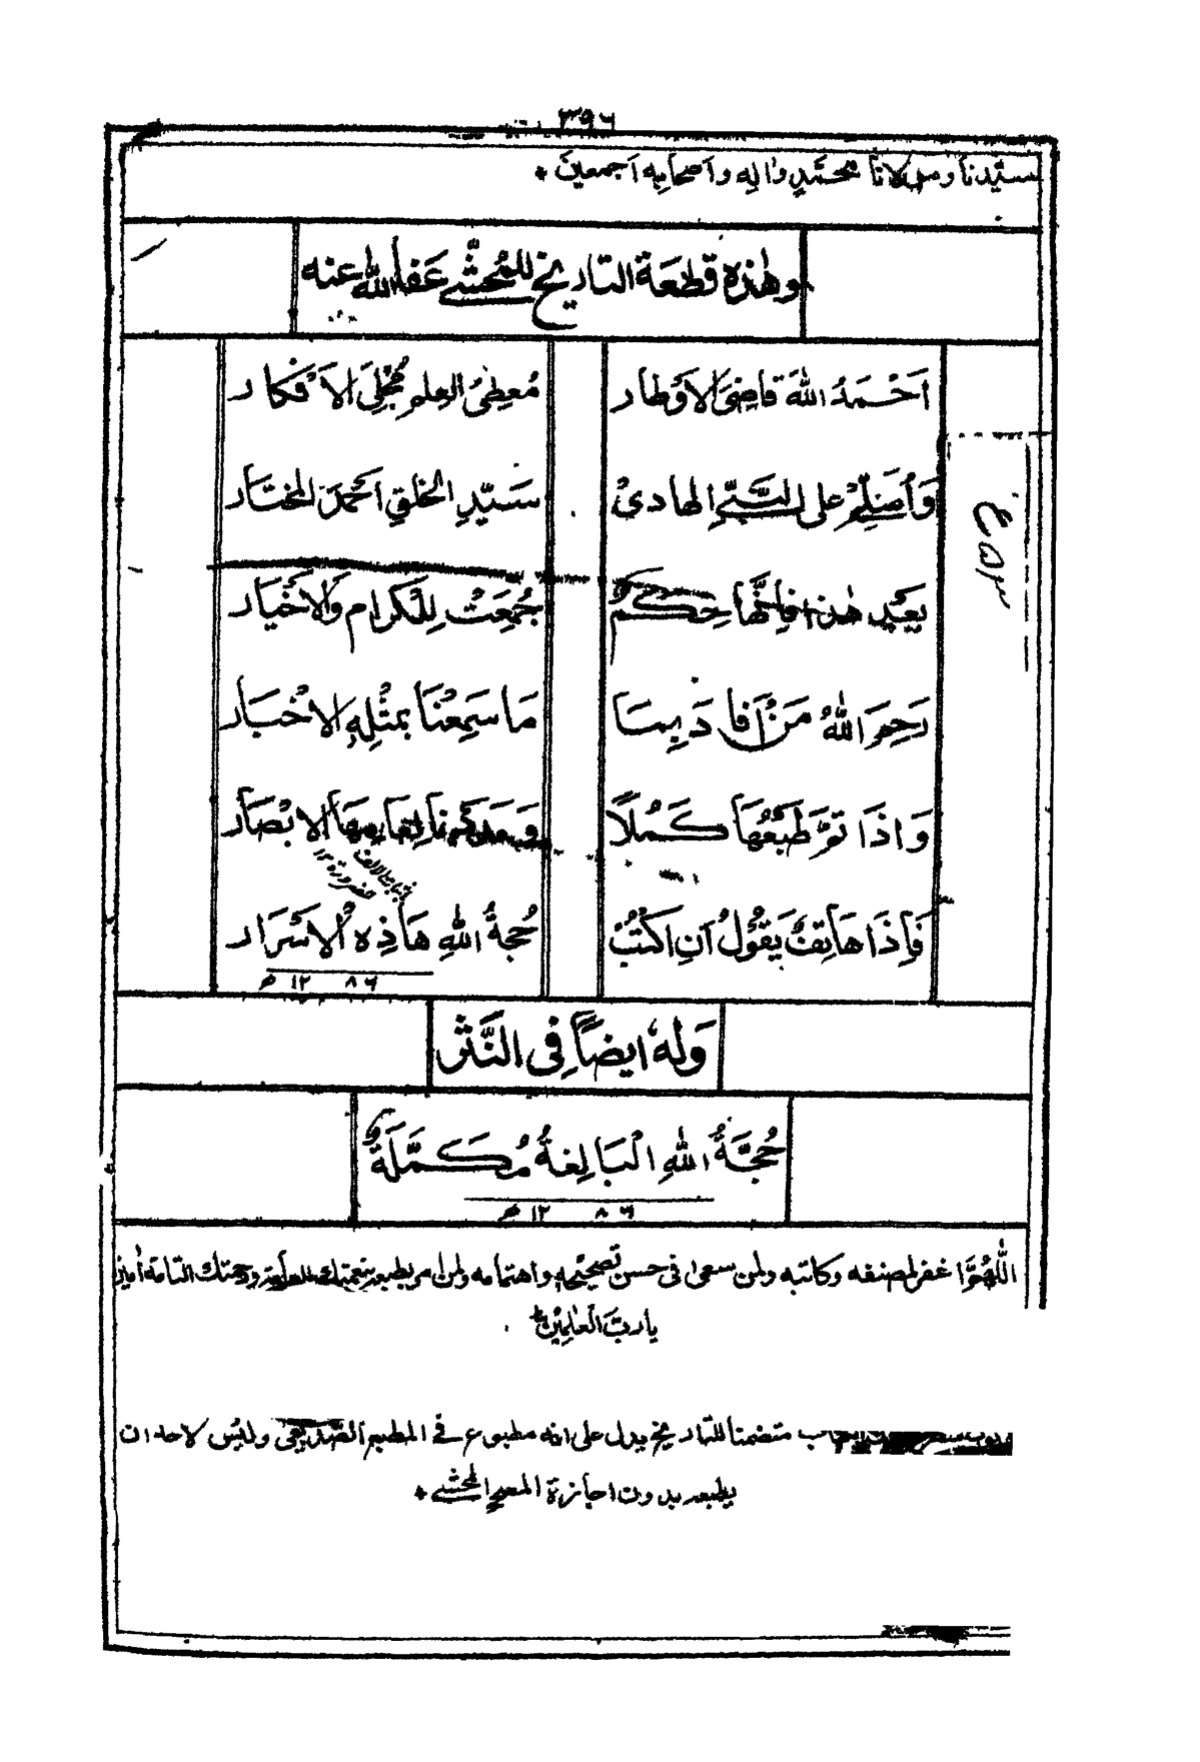 ٣٩٦
سيّدنا ومولانا محمّدٍ واٰله واَصحابه اَجمعينَ *
وهٰذه قطعة التاريخ للمُحشّي عَفا اللّٰه عنه
اَحْمَدُ اللّٰهَ قاضِيَ الاَوْطار مُعطِيَ العِلم مُجْلِيَ الاَفْكار
وَاُصَلِّيْ على النَّبِيِّ الهادِيْ سَيّدِ الخلقِ اَحْمَدَ المختَار
بَعْدِ هٰذا فانَّها حِكَمٌ جُمِعَتْ لِلْكرام وَالاَخْيَار
رَحِمَ اللّٰهُ مَنْ اَفادَ بِمَا مَا سَمِعْنَا بمِثْلِهِ الاَخْبَار
وَاذَا تمَّ طَبْعُهَا كَمُلاً الابْصَار
باثبات الالف
ضرورة ١٢
فَاِذَا هَاتِفٌ يَقُوْلُ اَنِ اكْتُبْ حُجةُ اللّٰهِ هَاذِه الاَسْرَار
١٢ ٨٦ ھ
وَلهٗ ايضاً فِي النَّثْر
حُجَّةُ اللّٰهِ الْبَالِغةُ مُكَمَّلَةٌ
١٢ ٨٦ ھ
اللّٰهُمَّ اغفر لمصنفه وكاتبه ولمن سعىٰ فى حسن تصحيحه واهتمامه ولمن امر بطبعه بنعمتك ورحمتك التامة اٰمين
يا ربَّ الْعٰلمِيْنَ
متضمنا للتاريخ يدل على انه مطبوع فى المطبع الصديقى وليس لاحد ان
يطبعه بدون اجازة المصحح المحشّي *